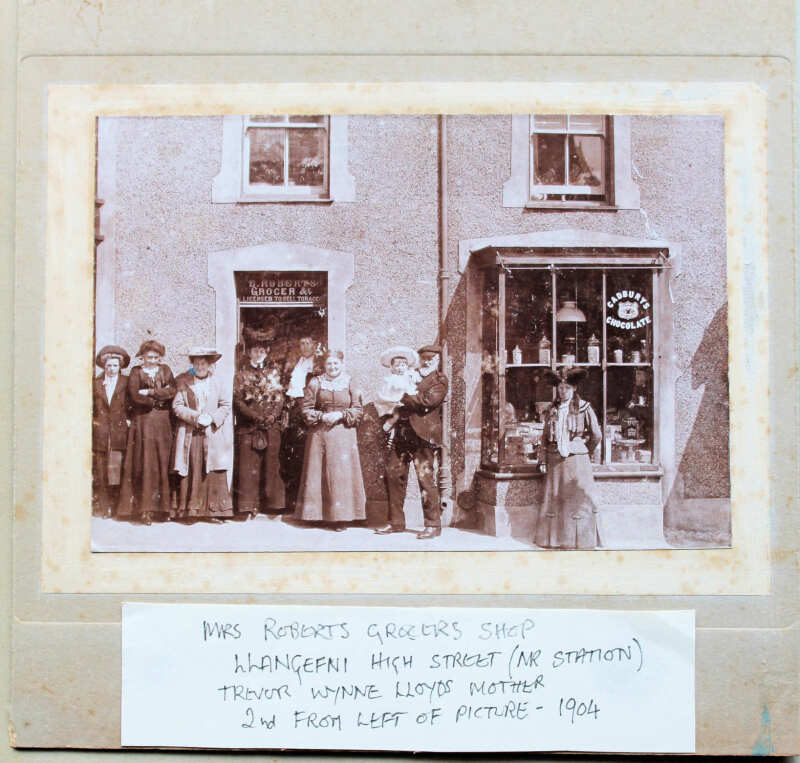 R. ROBERTS
GROCER &c
LICENSED TO SELL TOBACCO
CADBURYS
CHOCOLATE
MRS ROBERTS GROCERS SHOP
LLANGEFNI HIGH STREET (NR STATION)
TREVOR WYNNE LLOYDS MOTHER
2nd FROM LEFT OF PICTURE - 1904